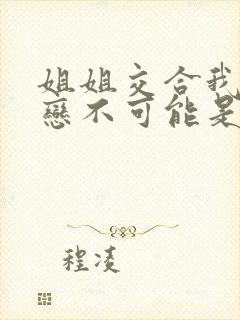 姐姐交合我
戀不可能是
程凌